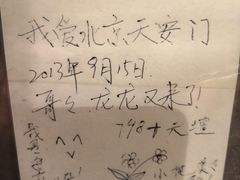 我爱北京天安门
2013年9月15日.
哥々 龙龙又来了!
798十天壇
小